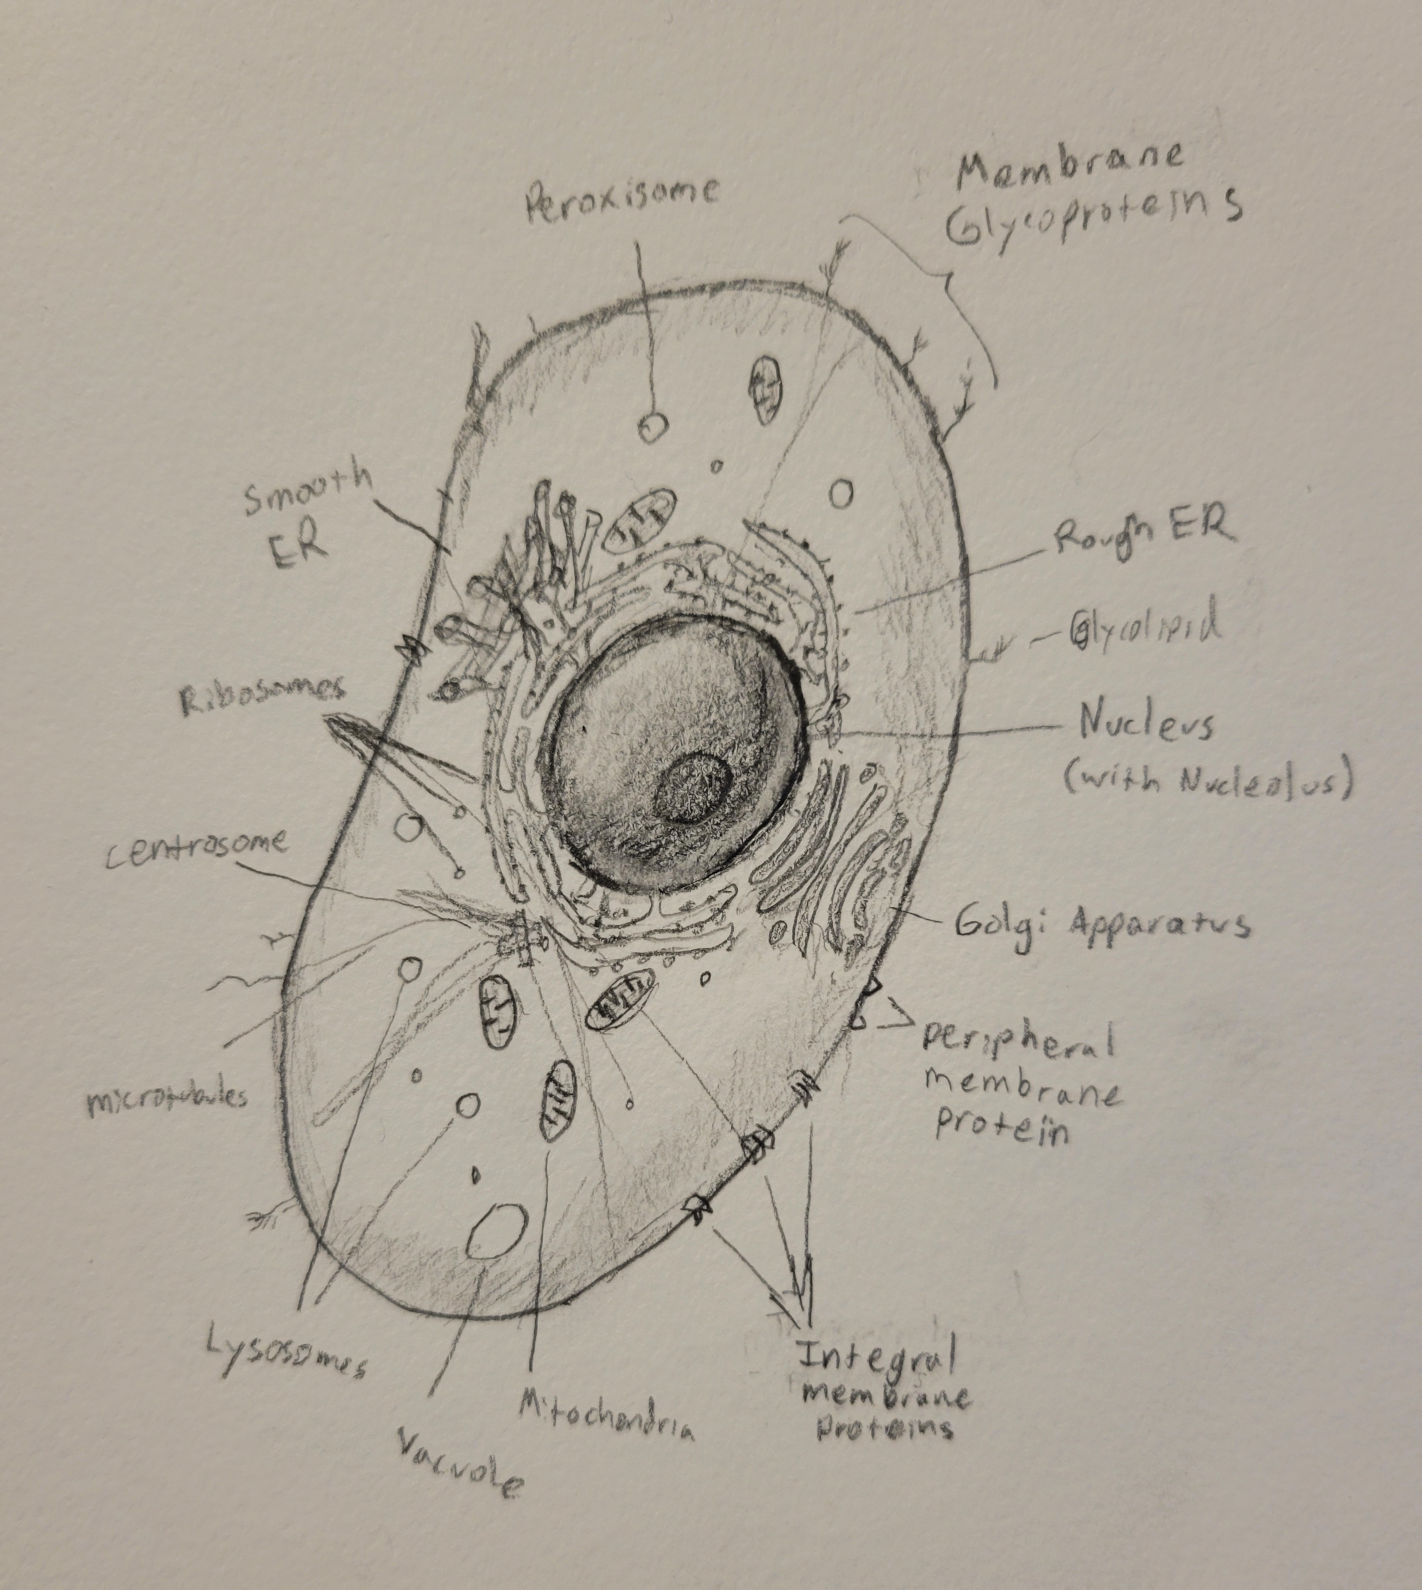 Peroxisome
Membrane
Glycoproteins
Smooth
ER
Rough ER
Glycolipid
Ribosomes
Nucleus
(with Nucleolus)
centrosome
Golgi Apparatus
peripheral
membrane
protein
microtubules
Lysosomes
Integral
membrane
proteins
Mitochondria
Vacuole